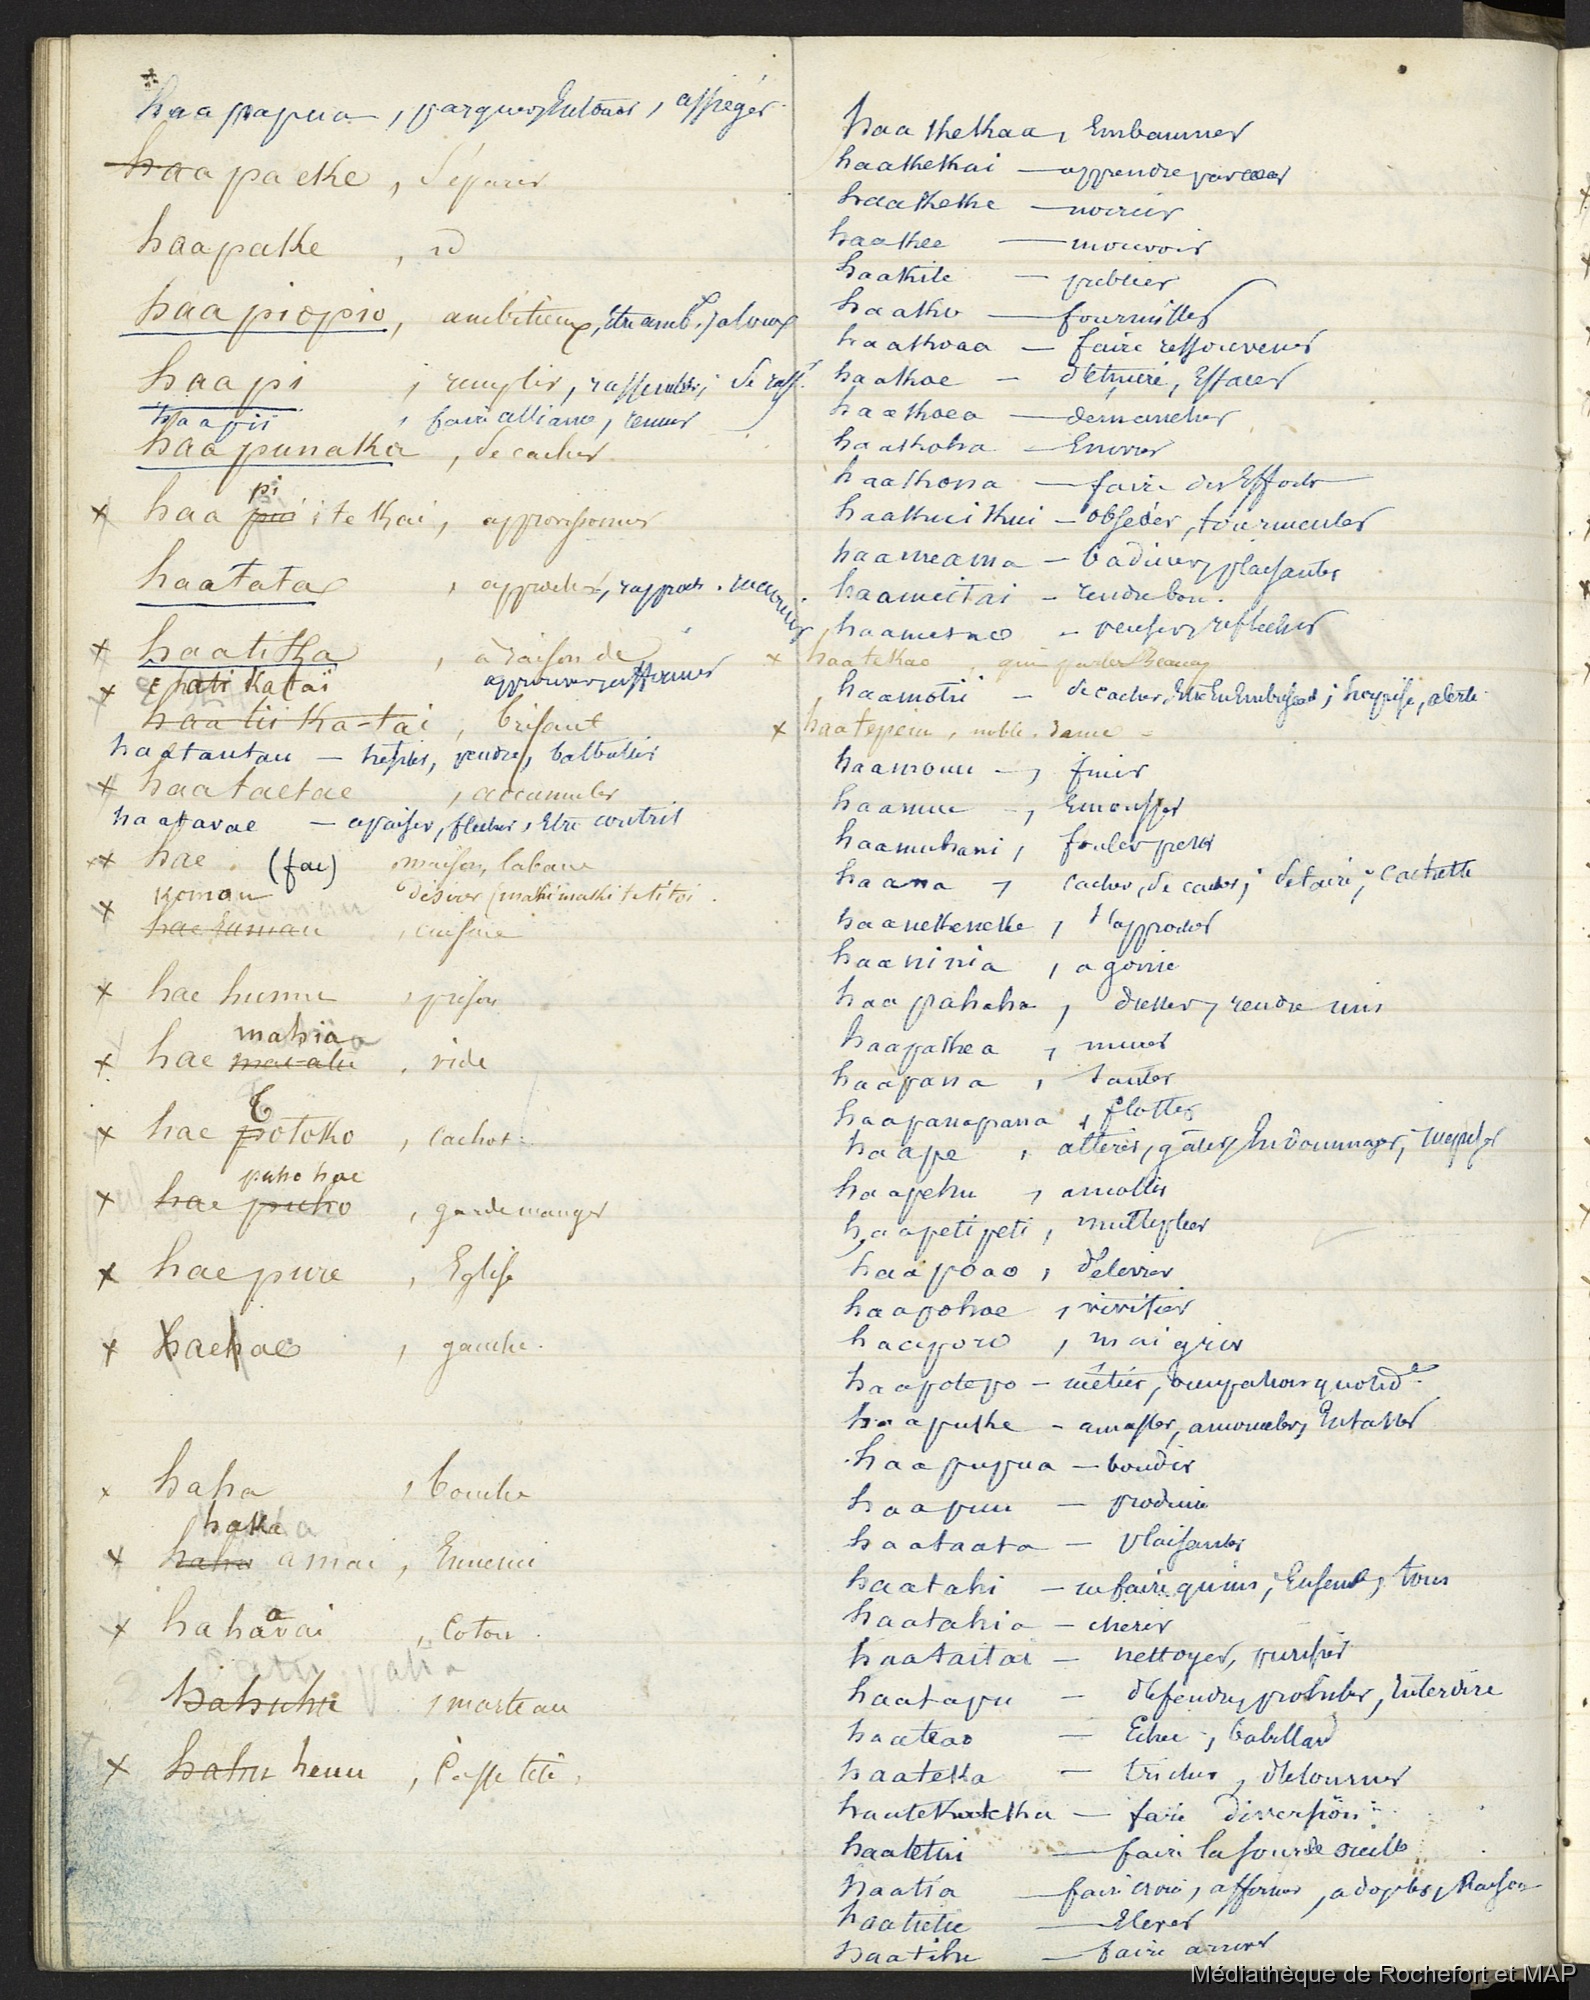 haapapua, parquer, Entourer, assiéger
haapaeke, séparer
haapake, id
haapiopio, ambitieux, être amb. jaloux
haapi, remplir, rassembler; se rass.
haapii, faire alliance, renier
haapunaka, se cacher
haa pi itekai, approvisionner
haatata, approcher, rapproch.
haatika, à raison de
approuver, affirmer
ehati Kataï
haa tii ka-tai, brisant
haatautau — hésiter, pendre, balbutier
haataetae, accumuler
haatavae — apaiser, flechir, Etre contrit
hae (fae) maison, cabane
Komou désirer (makimaki tetitoi.
hae kuman, cuisine
hae humu, prison
mahiaa
hae, vide
hae potoko, cachot
puho hae
hae puho, garde manger
hae pure, Eglise
haehae, gauche.
haha, bouche
haka
haha amai, Ennemi
hahavai, Coton.
hahuhu, marteau
hahu heuu, Casse tête,
haakekaa, Embaumer
haakekai — apprendre par cœur
haakeke — noircir
haakee — mouvoir
haakite — publier
haako — fourmiller
haakoaa — faire ressouvenir
haakoe — détruire, Effacer
haakoea — démancher
haakona — Enivrer
haakona — faire des Efforts
haakuikui — obséder, tourmenter
haameama — badiner, plaisanter
haameitai — rendre bon.
haamesao — penser, reflechir
haatekao, qui parler Beaucp
haamotii — se cacher, Etre En Embuscad; , alerte
haatepeiu, noble. dame
haamouu —, finir
haamuu —, Emousser
haamuhani, fouler
haana, cacher, se cacher; se taire; cachette
haanekeneke, s'approcher
haaninia, agonie
haapahaha, dresser, rendre uni
haapakea, murer
haapana, sauter
haapanapana, flotter
haape, altérer, gâter, Endommager,
haapehu, amollir
haapetipeti, multiplier
haapoao, délivrer
haapohoe, vivifier
haaporo, maigrir
haapotepo — métier, occupation quotid.e
haapuke — amasser, amonceler, Entasser
haapupua — bouder
haapuu — produire
haataata — plaisanter
haatahi — ne faire qu'un, Ensemble, tous
haatahia — cherir
haataitai — nettoyer, purifier
haatapu — défendre, prohiber, Interdire
haateao — Echo, babillard
haateka — tricher, détourner
haatekateka — faire diversion
haateturi — faire la sourde oreille
haatia — faire croire, affirmer, adopter, Raison
haatietie — Elever
haatihe — faire arriver
Médiathèque de Rochefort et MAP